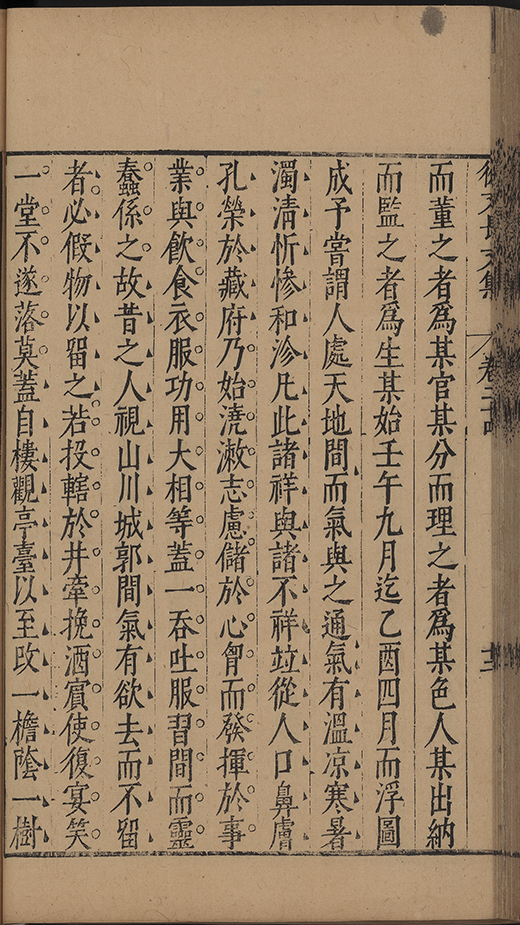 徐文長文集 卷二 十二
而董之者爲某官某分而理之者爲某色人某出納
而監之者爲生某始壬午九月迄乙酉四月而浮圖
成予嘗謂人處天地間而氣與之通氣有溫凉寒暑
濁清忻慘和沴凡此諸祥與諸不祥竝從人口鼻膚
孔榮於藏府乃始澆漱志慮儲於心胷而發揮於事
業與飲食衣服功用大相等蓋一吞吐服習間而靈
蠢係之故昔之人視山川城郭間氣有欲去而不留
者必假物以留之若投轄於井牽挽酒賓使復宴笑
一堂不遂落莫蓋自樓觀亭臺以至改一檐蔭一樹